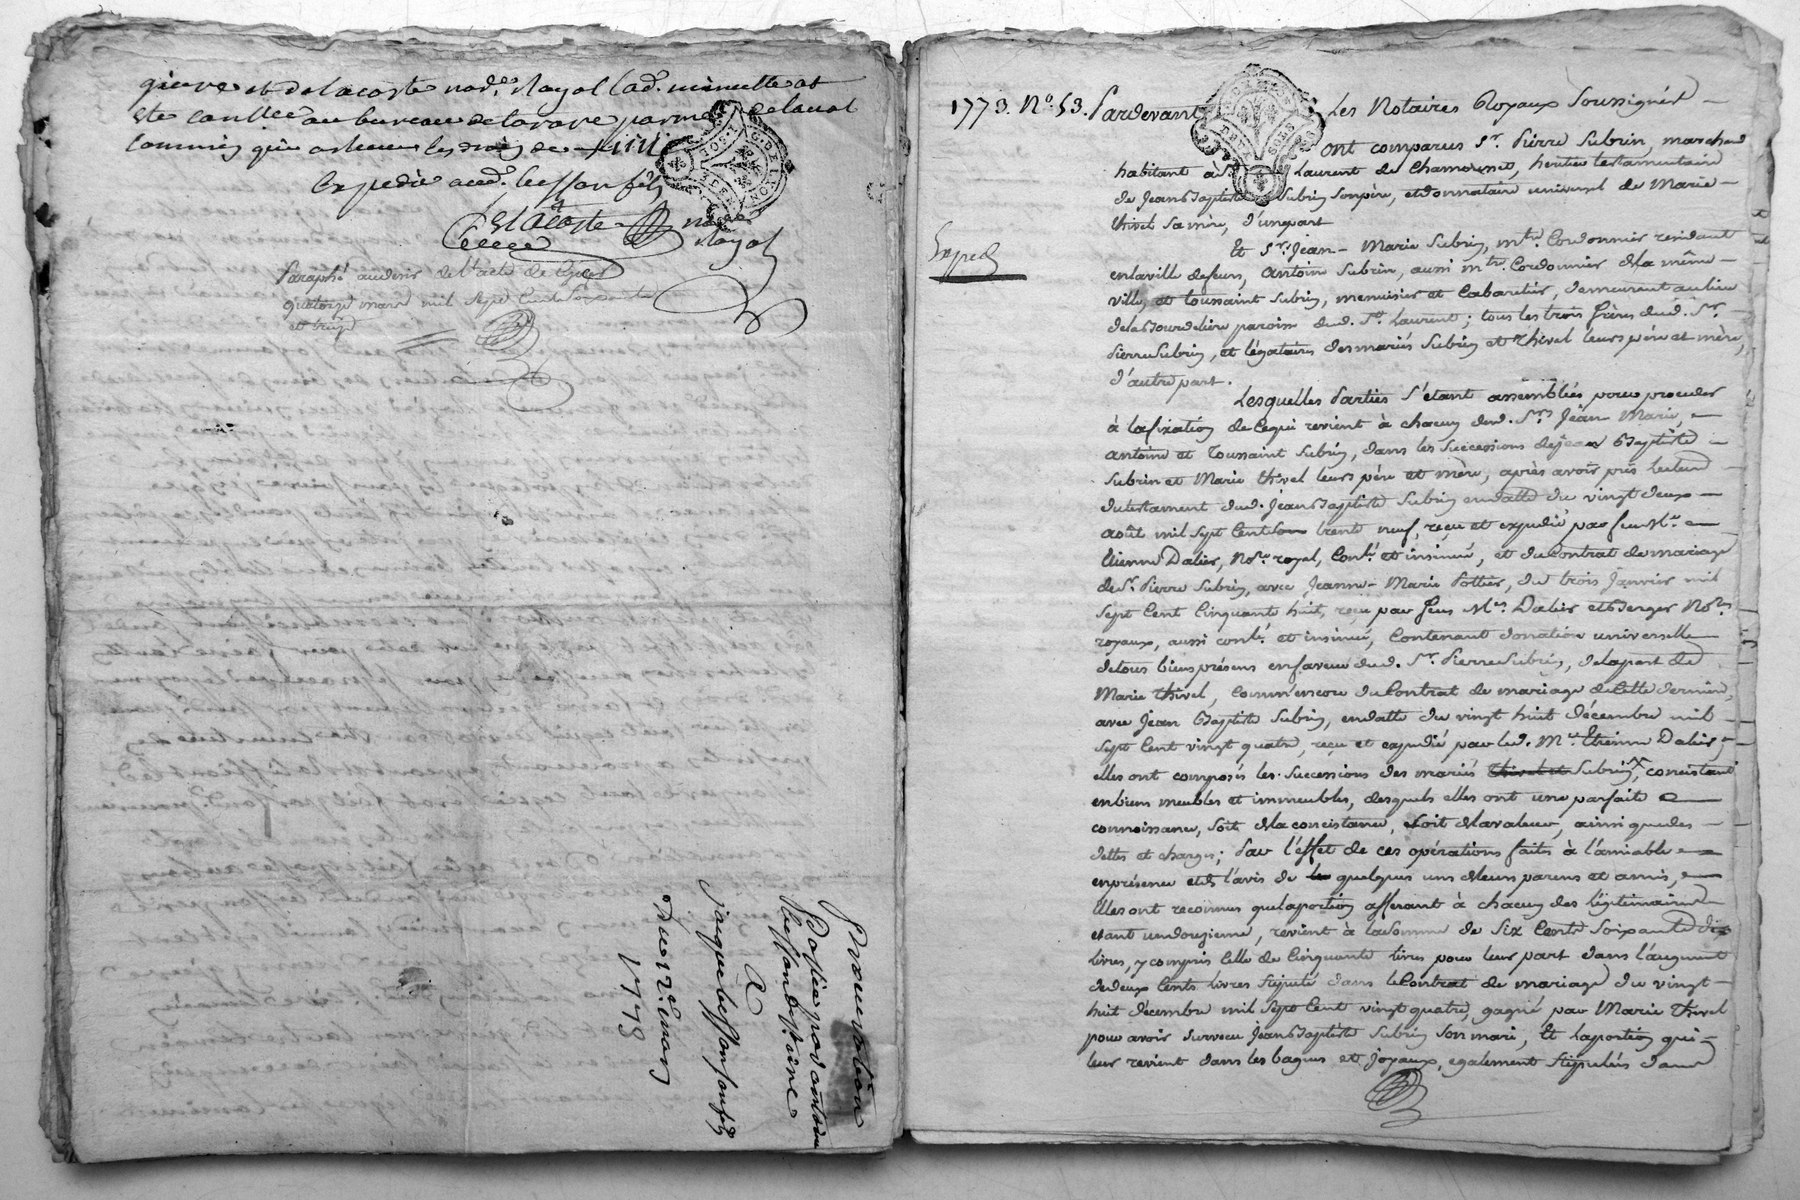 gieure et delacoste nod. Royal lad. minutte at
été conllée au bureau de par me delaval
commis qui a les de
Expedié aud. besson fils
Delacoste no.re
Royal
Paraphé au desir de l'acte de
quatorze mars mil sept Cent Soixante
et treize
Procuration
passée par antoine
Besson de St. Etiene
A
jacque besson son fils
Du 12e. mars
1773
1773. No. 53. Pardevant Les Notaires Royaux Soussignés
ont comparus Sr. Pierre Subrin, marchand
habitant à St. Laurent de Chamousset, héritier testamentaire
de Jean Baptiste Subrin Son père, et donnataire universel de Marie
thivel Sa mère, d'une part
Exped
Et Srs. Jean-Marie Subrin, mtre. Cordonnier residant
en la ville de feurs, Antoine Subrin, aussi mtre. Cordonnier de la même
ville, et toussaint Subrin, menuisier et Cabaretier, demeurant au lieu
de la Bourdeliere paroisse dud. St. Laurent; tous les trois frères dud. Sr.
Pierre Subrin, et légataires des mariés Subrin et thivel leurs père et mère,
d'autre part.
Lesquelles Parties S'étant assemblées pour proceder
à la fixation de Ce qui revient à chacun desd. Srs. Jean Marie,
antoine et toussaint Subrin, dans les Successions de jean Baptiste
Subrin et Marie thivel leurs père et mère, après avoir pris lecture
du testament dud. Jean Baptiste Subrin en datte du vingt deux
août mil Sept Cent trente neuf, reçu et expedié par feu Me.
Etienne Dalier, Nore. royal, Conlé. et insinué, et du Contrat de mariage
de Sr. Pierre Subrin, avec Jeanne-Marie Pottier, du trois Janvier mil
Sept Cent Cinquante huit, reçu par feus Mes. Dalier et Berger Nores.
royaux, aussi conlé. et insinué, Contenant donation universelle
de tous biens présens en faveur dud. Sr. Pierre Subrin, de la part de
Marie thivel, Comm'encore du Contrat de mariage de Cette derniere,
avec Jean Baptiste Subrin, en datte du vingt huit décembre mil
Sept Cent vingt quatre, reçu et expedié par led. Me. Etienne Dalier,
elles ont composés les Successions des mariés thivel et Subrin, concistant
en biens meubles et immeubles, desquels elles ont une parfaite
connoissance, Soit de la concistance, Soit de la valeur, ainsi que des
dettes et charges; Par l'effet de ces opérations faites à l'amiable
en présence et de l'avis de quelques uns de leurs parens et amis,
Elles ont reconnus que la portion afférant à chacun des légitimaires
etant un douzieme, revient à la Somme de Six Cents Soixante dix
livres, y compris Celle de Cinquante livres pour leur part dans l'augment
de deux Cents livres Stipulé dans le Contrat de mariage du vingt
huit décembre mil Sept Cent vingt quatre, gagné par Marie thivel
pour avoir Survecu Jean Baptiste Subrin Son mari, Et la portion qui
leur revient dans les bagues et joyaux, egalement Stipulés dans